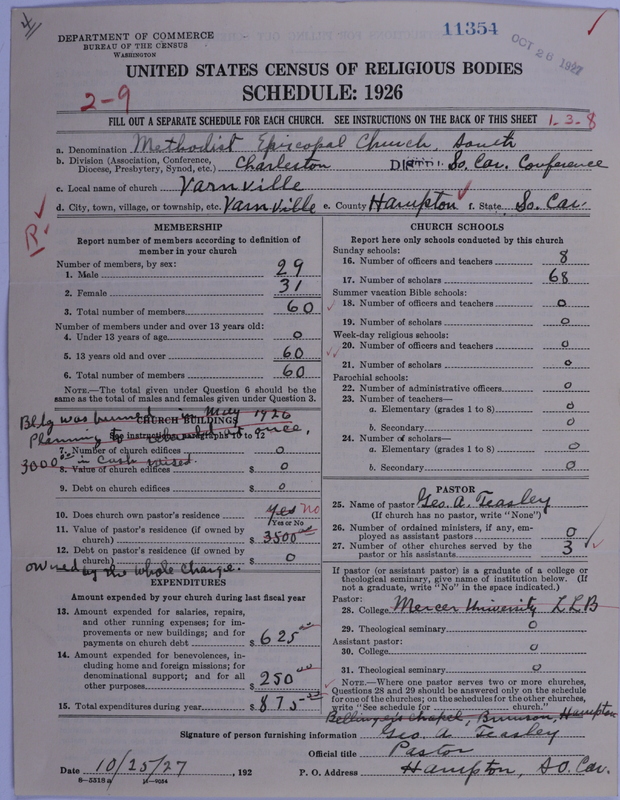 4
DEPARTMENT OF COMMERCE
BUREAU OF THE CENSUS
WASHINGTON
11354
OCT 26 1927
UNITED STATES CENSUS OF RELIGIOUS BODIES
SCHEDULE: 1926
2-9
FILL OUT A SEPARATE SCHEDULE FOR EACH CHURCH. SEE INSTRUCTIONS ON THE BACK OF THIS SHEET 1-3-8
a. Denomination Methodist Episcopal Church, South
b. Division (Association, Conference, Diocese, Presbytery, Synod, etc.) Charleston So. Car. Conference
c. Local name of church Varnville
d. City, town, village, or township, etc. Varnville e. County Hampton f. State So. Car.
R
MEMBERSHIP
Report number of members according to definition of
member in your church
Number of members, by sex:
1. Male 29
2. Female 31
3. Total number of members 60
Number of members under and over 13 years old:
4. Under 13 years of age 0
5. 13 years old and over 60
6. Total number of members 60
NOTE.—The total given under Question 6 should be the
same as the total of males and females given under Question 3.
Bldg was burned in May 1926
CHURCH BUILDINGS
Planning to rebuild at once,
See instructions, paragraphs 10 to 12
7. Number of church edifices 0
3000 in cash raised.
8. Value of church edifices $ 0
9. Debt on church edifices $ 0
10. Does church own pastor's residence? yes No
Yes or No
11. Value of pastor's residence (if owned by
church) $ 3500 00
12. Debt on pastor's residence (if owned by
church) $ 0
owned by the whole charge.
EXPENDITURES
Amount expended by your church during last fiscal year
13. Amount expended for salaries, repairs,
and other running expenses; for im-
provements or new buildings; and for
payments on church debt $ 625 00
14. Amount expended for benevolences, in-
cluding home and foreign missions; for
denominational support; and for all
other purposes $ 250 00
15. Total expenditures during year $ 875 00
CHURCH SCHOOLS
Report here only schools conducted by this church
Sunday schools:
16. Number of officers and teachers 8
17. Number of scholars 68
Summer vacation Bible schools:
18. Number of officers and teachers 0
19. Number of scholars 0
Week-day religious schools:
20. Number of officers and teachers 0
21. Number of scholars 0
Parochial schools:
22. Number of administrative officers 0
23. Number of teachers—
a. Elementary (grades 1 to 8) 0
b. Secondary 0
24. Number of scholars—
a. Elementary (grades 1 to 8) 0
b. Secondary 0
PASTOR
25. Name of pastor Geo. A. Teasley
(If church has no pastor, write "None")
26. Number of ordained ministers, if any, em-
ployed as assistant pastors 0
27. Number of other churches served by the
pastor or his assistants 3
If pastor (or assistant pastor) is a graduate of a college or
theological seminary, give name of institution below. (If
not a graduate, write "No" in the space indicated.)
Pastor:
28. College Mercer University LLB
29. Theological seminary 0
Assistant pastor:
30. College 0
31. Theological seminary 0
NOTE.—Where one pastor serves two or more churches,
Questions 28 and 29 should be answered only on the schedule
for one of the churches; on the schedules for the other churches,
write "See schedule for church."
Bellinger's Chapel, Brunson, Hampton
Signature of person furnishing information Geo. A Teasley
Official title Pastor
Date 10/25/27, 192 P. O. Address Hampton, So. Car.
8-5518 a